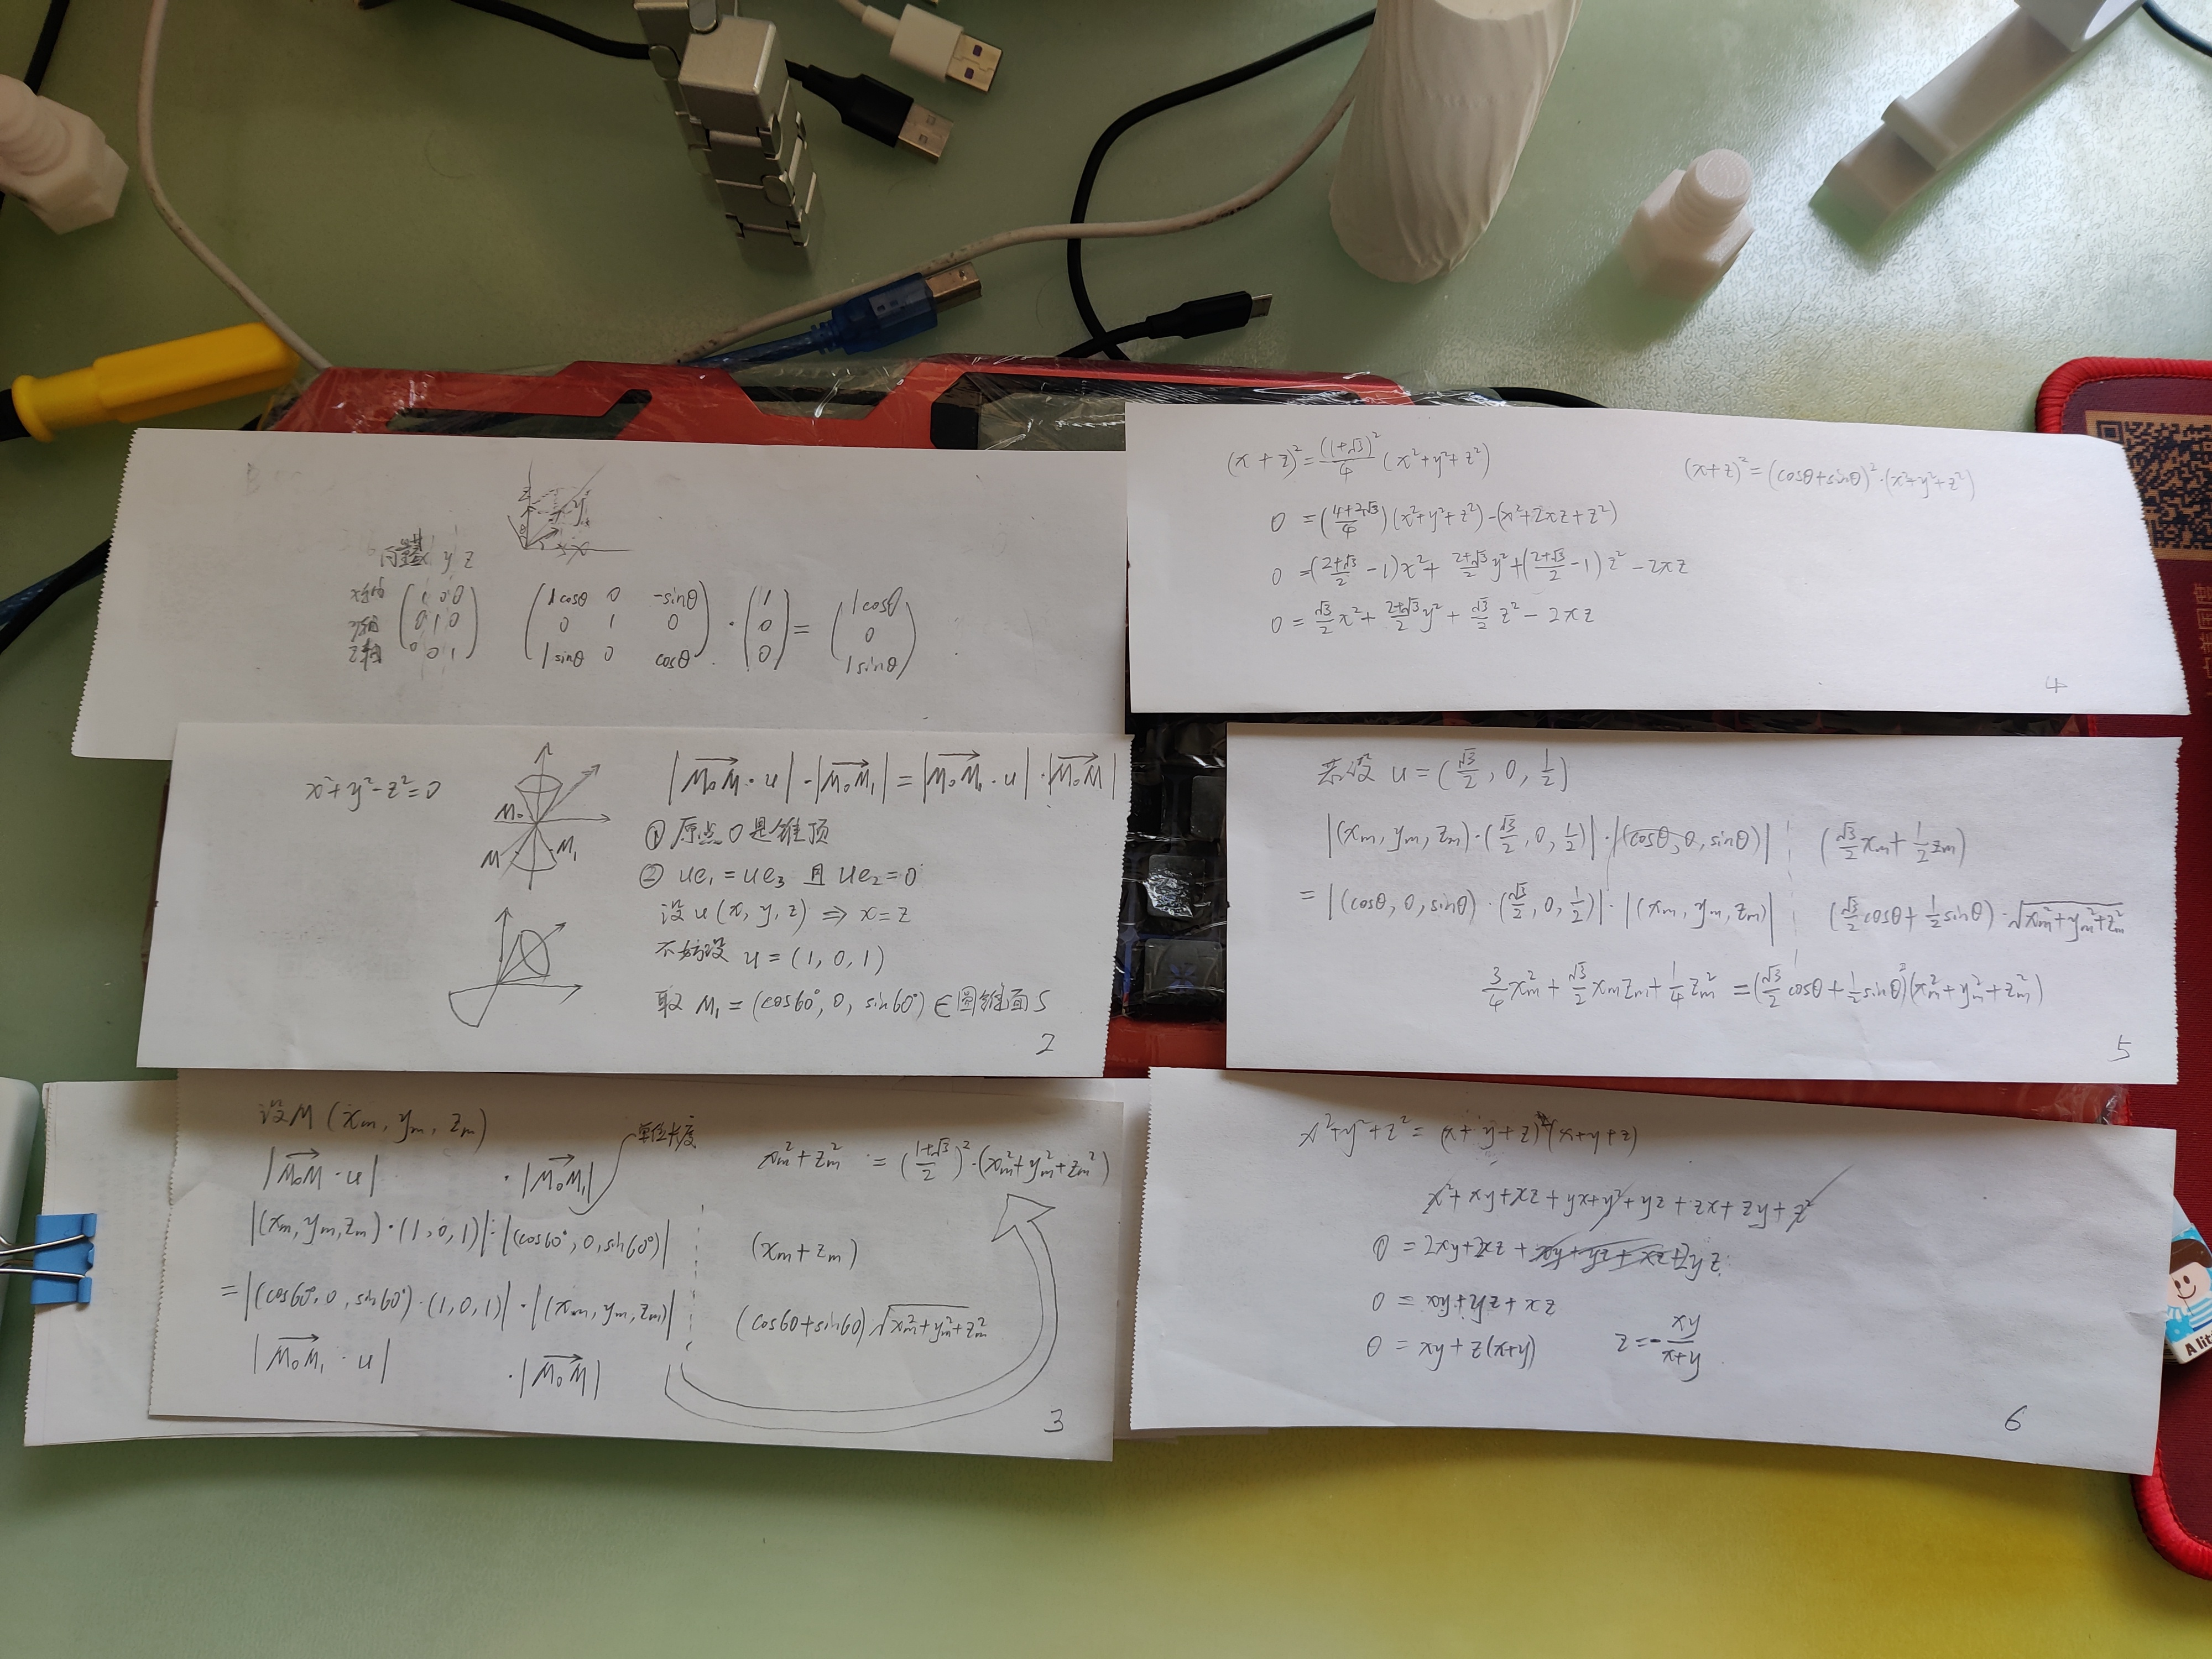 向量 x y z
x轴 ( 1 0 0 )
y轴 ( 0 1 0 )
z轴 ( 0 0 1 )
( 1cosθ 0 -sinθ ) ( 1 ) ( 1cosθ )
( 0 1 0 ) · ( 0 ) = ( 0 )
( 1sinθ 0 cosθ ) ( 0 ) ( 1sinθ )
z y x
x²+y²-z²=0
M₀
M M₁
|M₀M→·u|·|M₀M₁→|=|M₀M₁→·u|·|M₀M→|
① 原点O是锥顶
② ue₁=ue₃ 且 ue₂=0
设u(x,y,z) ⇒ x=z
不妨设 u=(1,0,1)
取 M₁=(cos60°,0,sin60°)∈圆锥面S
2
设M(xm,ym,zm)
单位长度
|M₀M→·u| ·|M₀M₁→|
|(xm,ym,zm)·(1,0,1)|·|(cos60°,0,sin60°)|
=|(cos60°,0,sin60°)·(1,0,1)|·|(xm,ym,zm)|
|M₀M₁→·u| ·|M₀M→|
xm²+zm² =((1+√3)/2)²·(xm²+ym²+zm²)
(xm+zm)
(cos60+sin60)√(xm²+ym²+zm²)
3
(x+z)²=(1+√3)²/4 (x²+y²+z²)
0 =((4+2√3)/4)(x²+y²+z²)-(x²+2xz+z²)
0 =((2+√3)/2-1)x²+(2+√3)/2 y²+((2+√3)/2-1)z²-2xz
0 =√3/2 x²+(2+√3)/2 y²+√3/2 z²-2xz
(x+z)²=(cosθ+sinθ)²·(x²+y²+z²)
4
若设 u=(√3/2,0,1/2)
|(xm,ym,zm)·(√3/2,0,1/2)|·|(cosθ,0,sinθ)| (√3/2 xm+1/2 zm)
=|(cosθ,0,sinθ)·(√3/2,0,1/2)|·|(xm,ym,zm)| (√3/2 cosθ+1/2 sinθ)·√(xm²+ym²+zm²)
3/4 xm²+√3/2 xmzm+1/4 zm²=(√3/2 cosθ+1/2 sinθ)²(xm²+ym²+zm²)
5
x²+y²+z²=(x+y+z)(x+y+z)
x²+xy+xz+yx+y²+yz+zx+zy+z²
0 =2xy+2xz+2yz
0 = xy+yz+xz
0 = xy+z(x+y) z=-xy/(x+y)
6
A lit